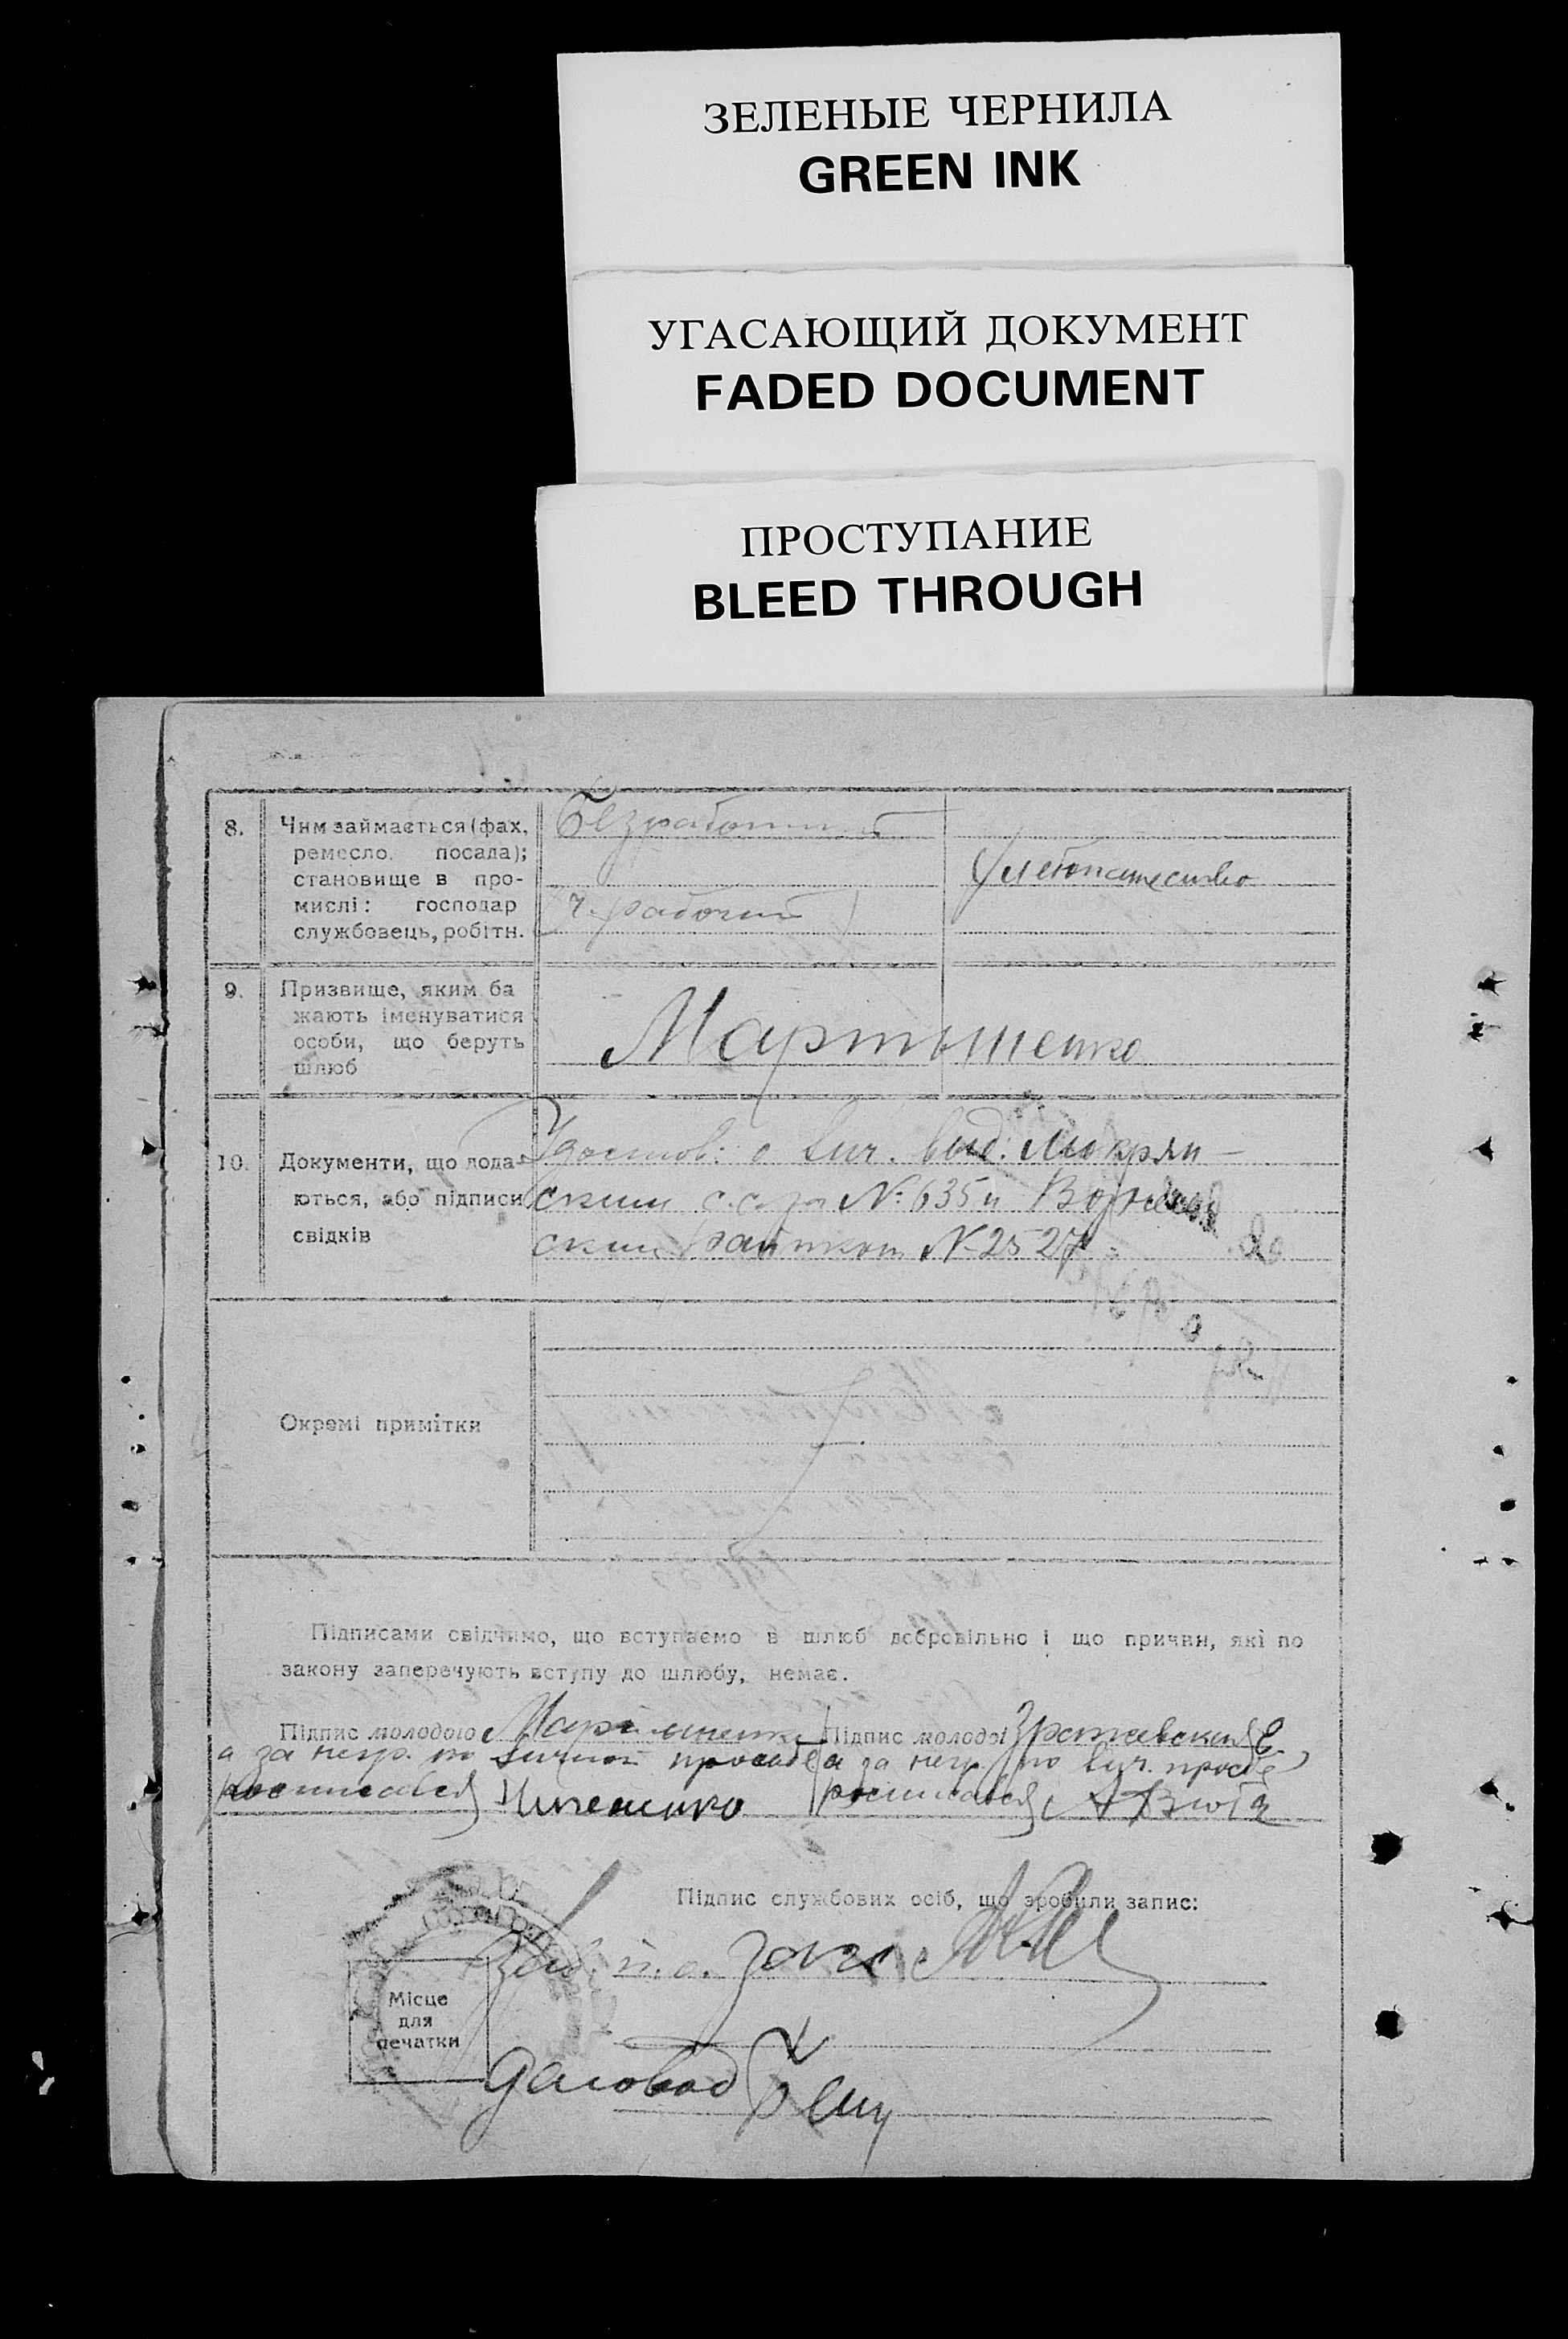 ЗЕЛЕНЫЕ ЧЕРНИЛА
GREEN INK
УГАСАЮЩИЙ ДОКУМЕНТ
FADED DOCUMENT
ПРОСТУПАНИЕ
BLEED THROUGH
8.
Чим займається (фах,
ремесло, посада);
становище в про-
мислі: господар
службовець, робітн.
Безработный
рабочий
Хлебопашество
9.
Призвище, яким ба
жають іменуватися
особи, що беруть
шлюб
Мартыненко
10.
Документи, що пода-
ються, або підписи
свідків
Удостов: о лич. выд.
ским с.с. за №: 635 и
ским №2527
Окремі примітки
Підписами свідчимо, що вступаємо в шлюб добровільно і що причин, які по
закону заперечують вступу до шлюбу, немає.
Підпис молодого Мартыненко Підпис молодої
а за негр. по личной просьбе а за негр. по лич. просьбе
росписався росписався
Підпис службових осіб, що зробили запис:
Зав. п.о. загс
Місце
для
печатки
Діловод